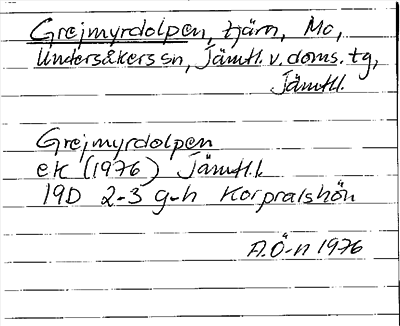 Grejmyrdolpen, tjärn, Mo,
Undersåkers sn, Jämtl. v. doms. tg,
Jämtl.
Grejmyrdolpen
ek (1976) Jämtl. l.
19D 2-3 g-h Korpralshön
A.Ö-n 1976